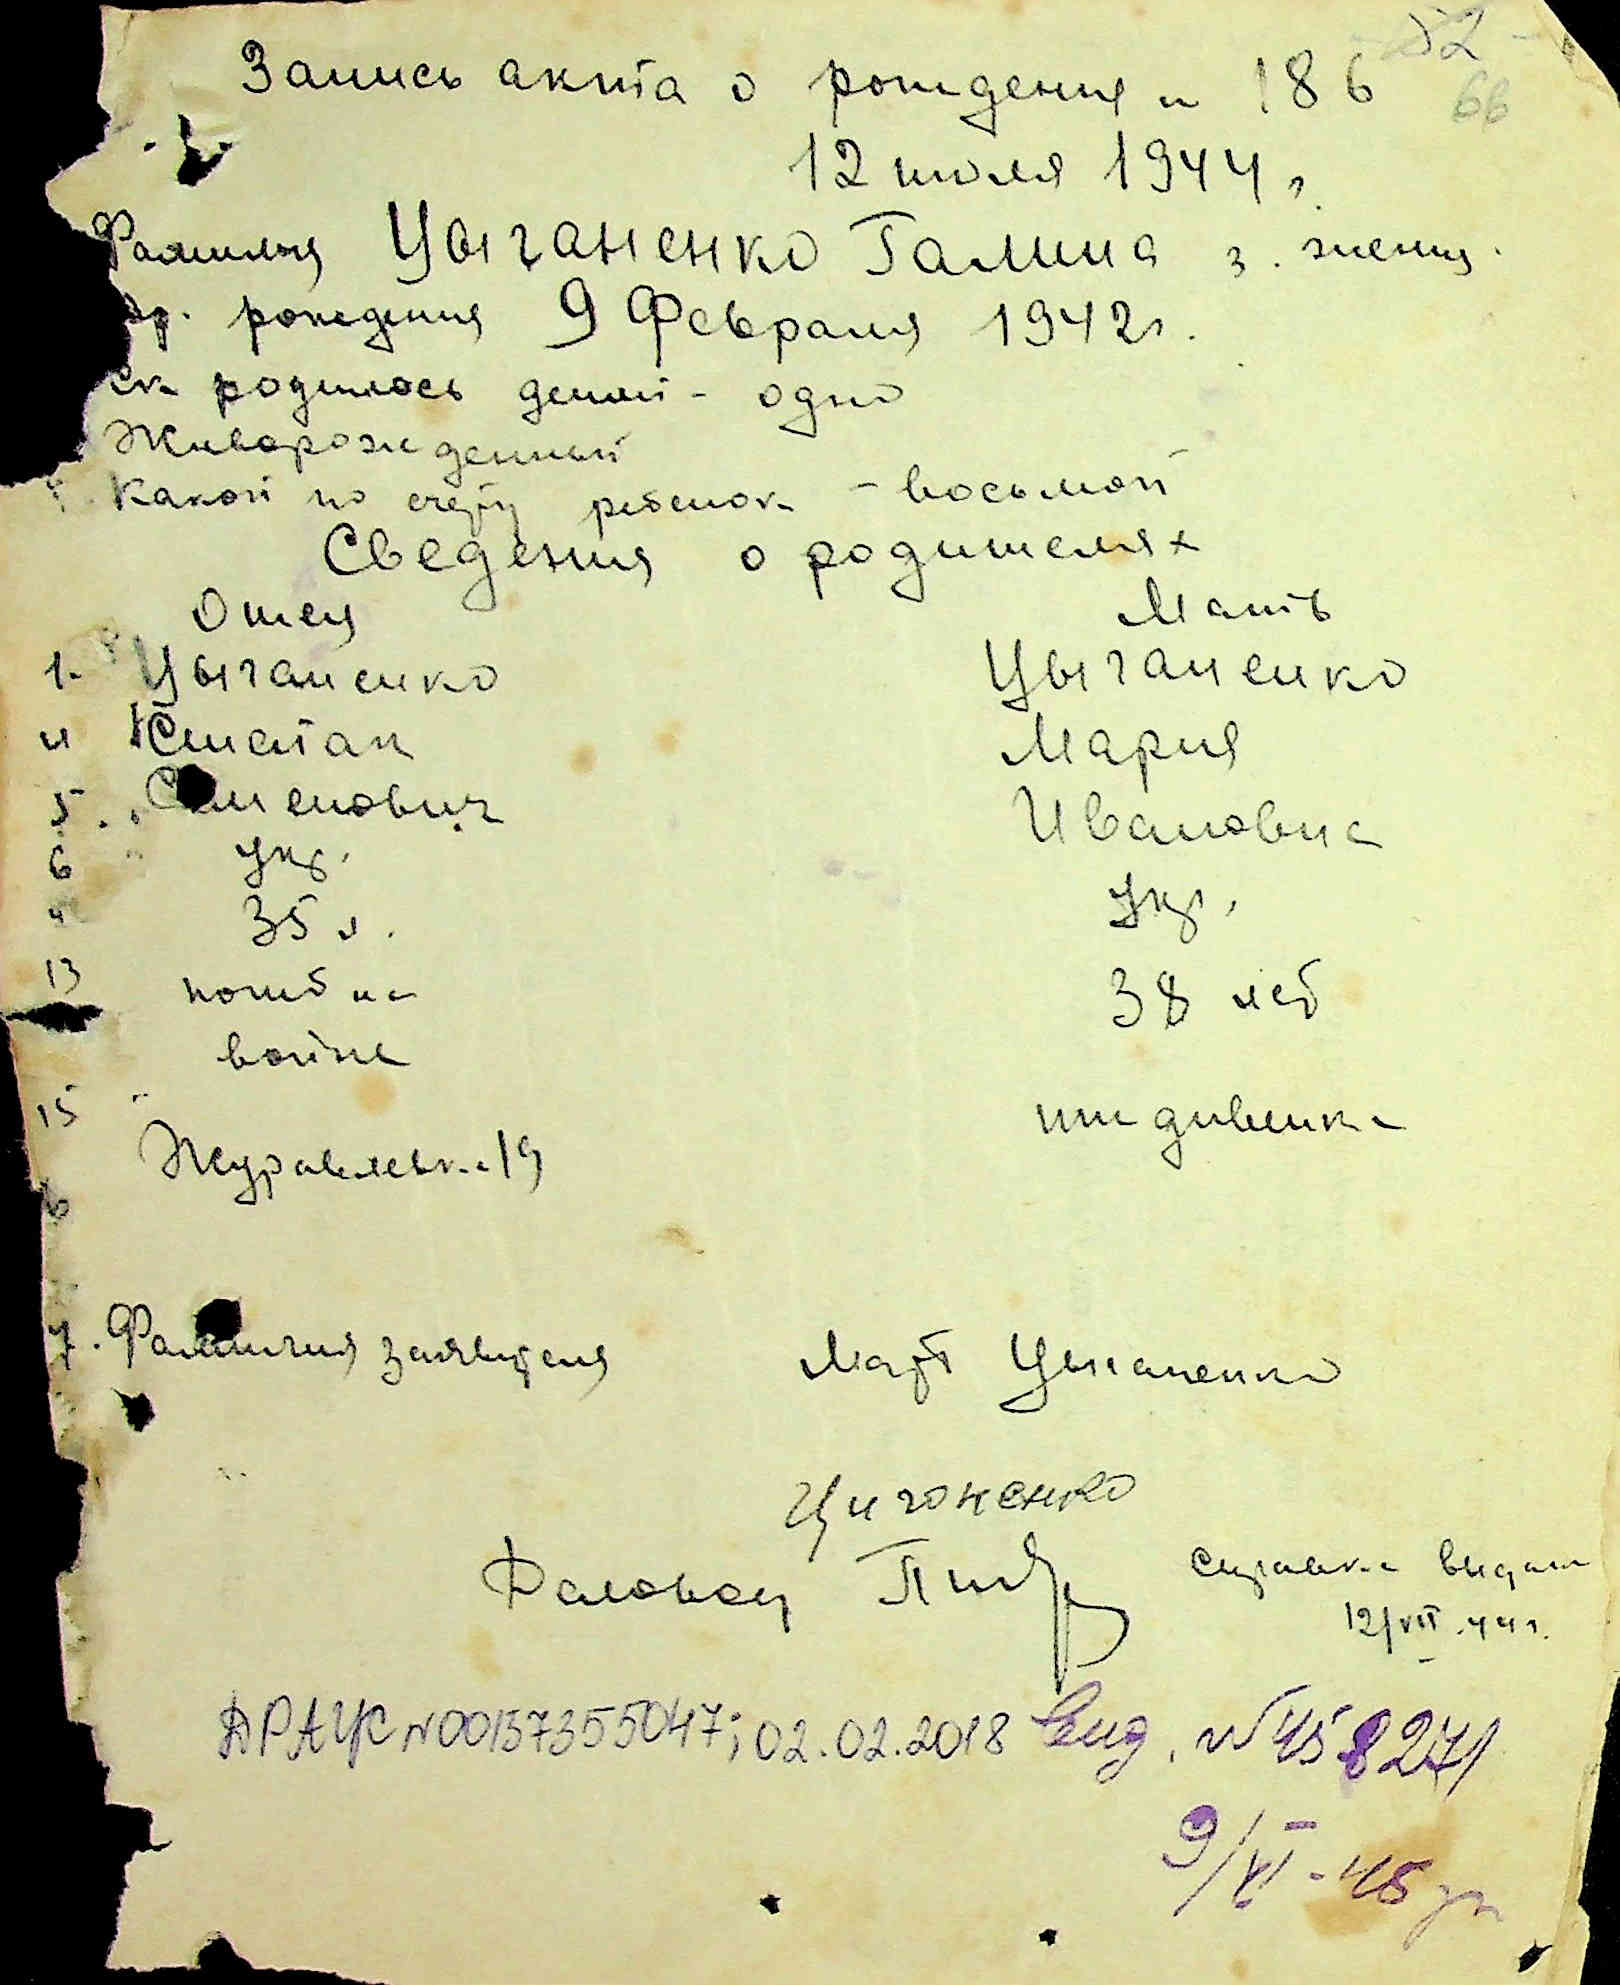 52
66
Запись акта о рождения н 186
12 июля 1944 г.
Фамилия Цыганенко Галина 3. женщ.
вр. рождения 9 Февраля 1942г.
ск родилось детей - одно
Живорожденный
Какой по счету ребенок - восьмой
Сведения о родителях
Отец Мать
1. Цыганенко Цыганенко
Мария
5. Семенович Ивановна
6 укр. укр.
35 л. 38 лет
13 погиб на
войне
15 иждивенка
Журавлевка 19
7. Фамилия заявителя Мать Цыганенко
Цигоненко
Справка выдана
12/VII.44г.
ДРАЦС N00137355047; 02.02.2018
9/VI-45